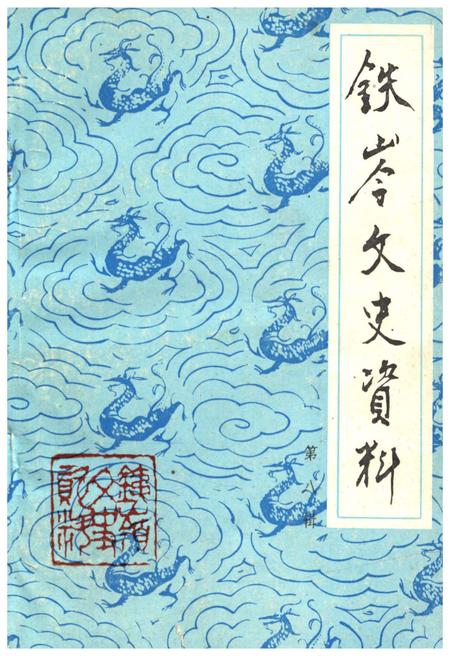 铁岺文史資料
第八辑
鐵嶺
文史
資料